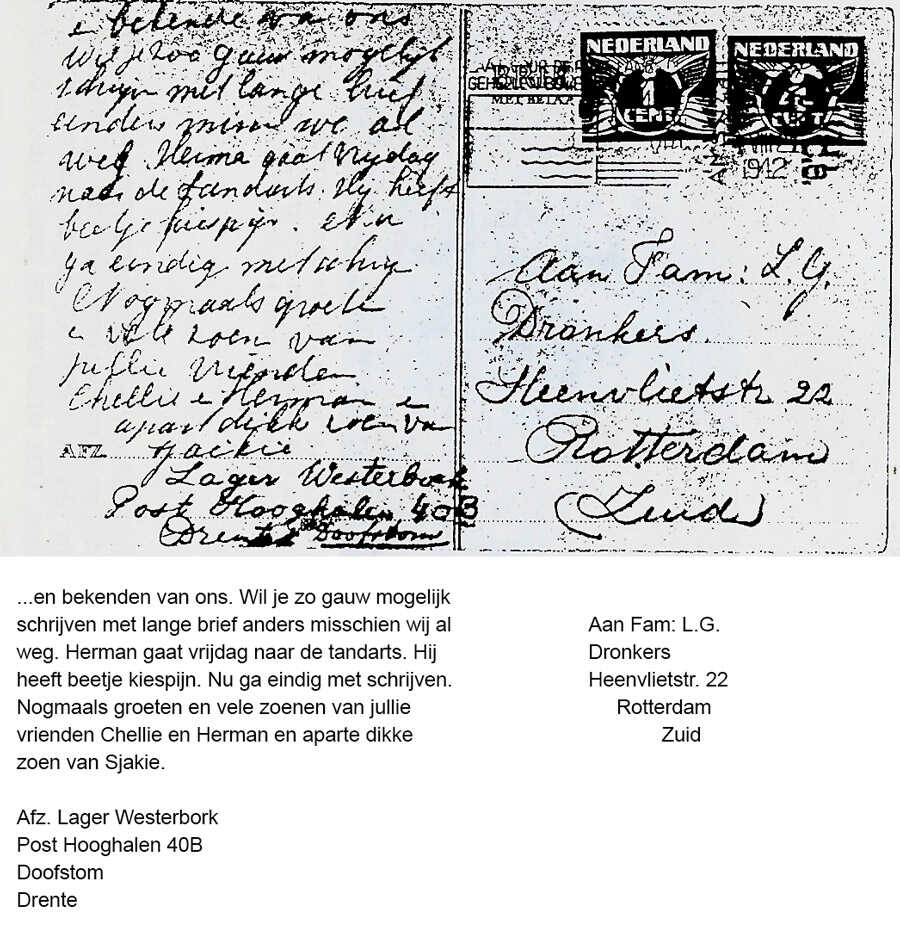 e bekende van ons
wil je zoo gauw mogelijk
schrijven met lange brief
anders wij al
weg Herman gaat Vrijdag
naar de tandarts. Hij heeft
beetje kiespijn. Nu
ga eindig met schrijven
Nogmaals groeten
e vele zoen van
jullie Vrienden
Chellie e Herman e
apart dikke zoen van
AFZ.
Lager Westerbork
Post Hooghalen 40B
Drente Doofstom
NEDERLAND
1
CENT
NEDERLAND
CENT
MET BETAA
1942
Aan Fam: L.G.
Dronkers
Heenvlietstr 22
Rotterdam
(Zuid)
...en bekenden van ons. Wil je zo gauw mogelijk
schrijven met lange brief anders misschien wij al
weg. Herman gaat vrijdag naar de tandarts. Hij
heeft beetje kiespijn. Nu ga eindig met schrijven.
Nogmaals groeten en vele zoenen van jullie
vrienden Chellie en Herman en aparte dikke
zoen van Sjakie.
Afz. Lager Westerbork
Post Hooghalen 40B
Doofstom
Drente
Aan Fam: L.G.
Dronkers
Heenvlietstr. 22
Rotterdam
Zuid